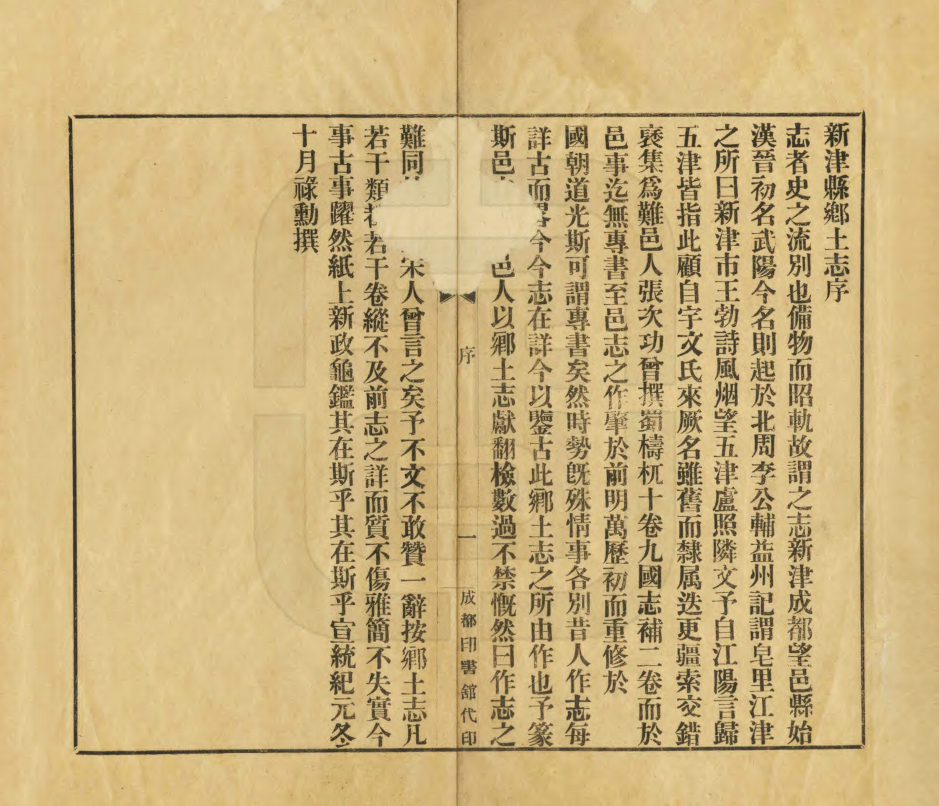 新津縣鄉土志序
志者史之流別也備物而昭軌故謂之志新津成都望邑縣始
漢晉初名武陽今名則起於北周李公輔益州記謂皂里江津
之所曰新津市王勃詩風烟望五津盧照隣文予自江陽言歸
五津皆指此顧自宇文氏來厥名雖舊而隸属迭更疆索交錯
裒集爲難邑人張次功曾撰蜀檮杌十卷九國志補二卷而於
邑事迄無專書至邑志之作肇於前明萬歷初而重修於
國朝道光斯可謂專書矣然時勢旣殊情事各別昔人作志每
詳古而畧今今志在詳今以鑒古此鄉土志之所由作也予篆
斯邑邑人以鄉土志獻翻檢數過不禁慨然曰作志之
難同宋人曾言之矣予不文不敢贊一辭按鄉土志凡
若干類若干卷縱不及前志之詳而質不傷雅簡不失實今
事古事躍然紙上新政龜鑑其在斯乎其在斯乎宣統紀元冬
十月祿勳撰
序
一
成都印書館代印